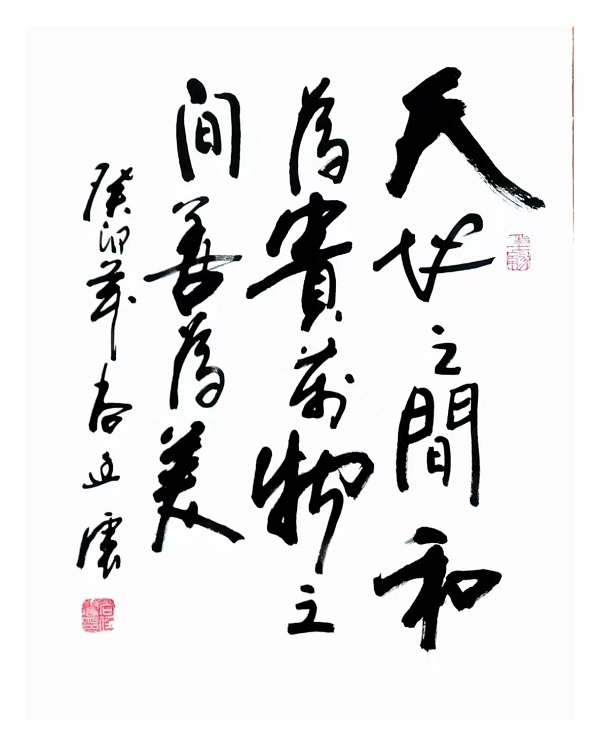 天地之間和
為貴萬物之
间善為美
癸卯年